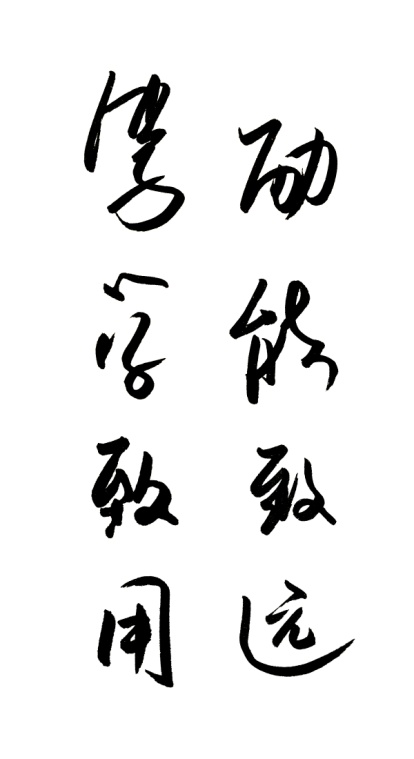 励能致远
学致用